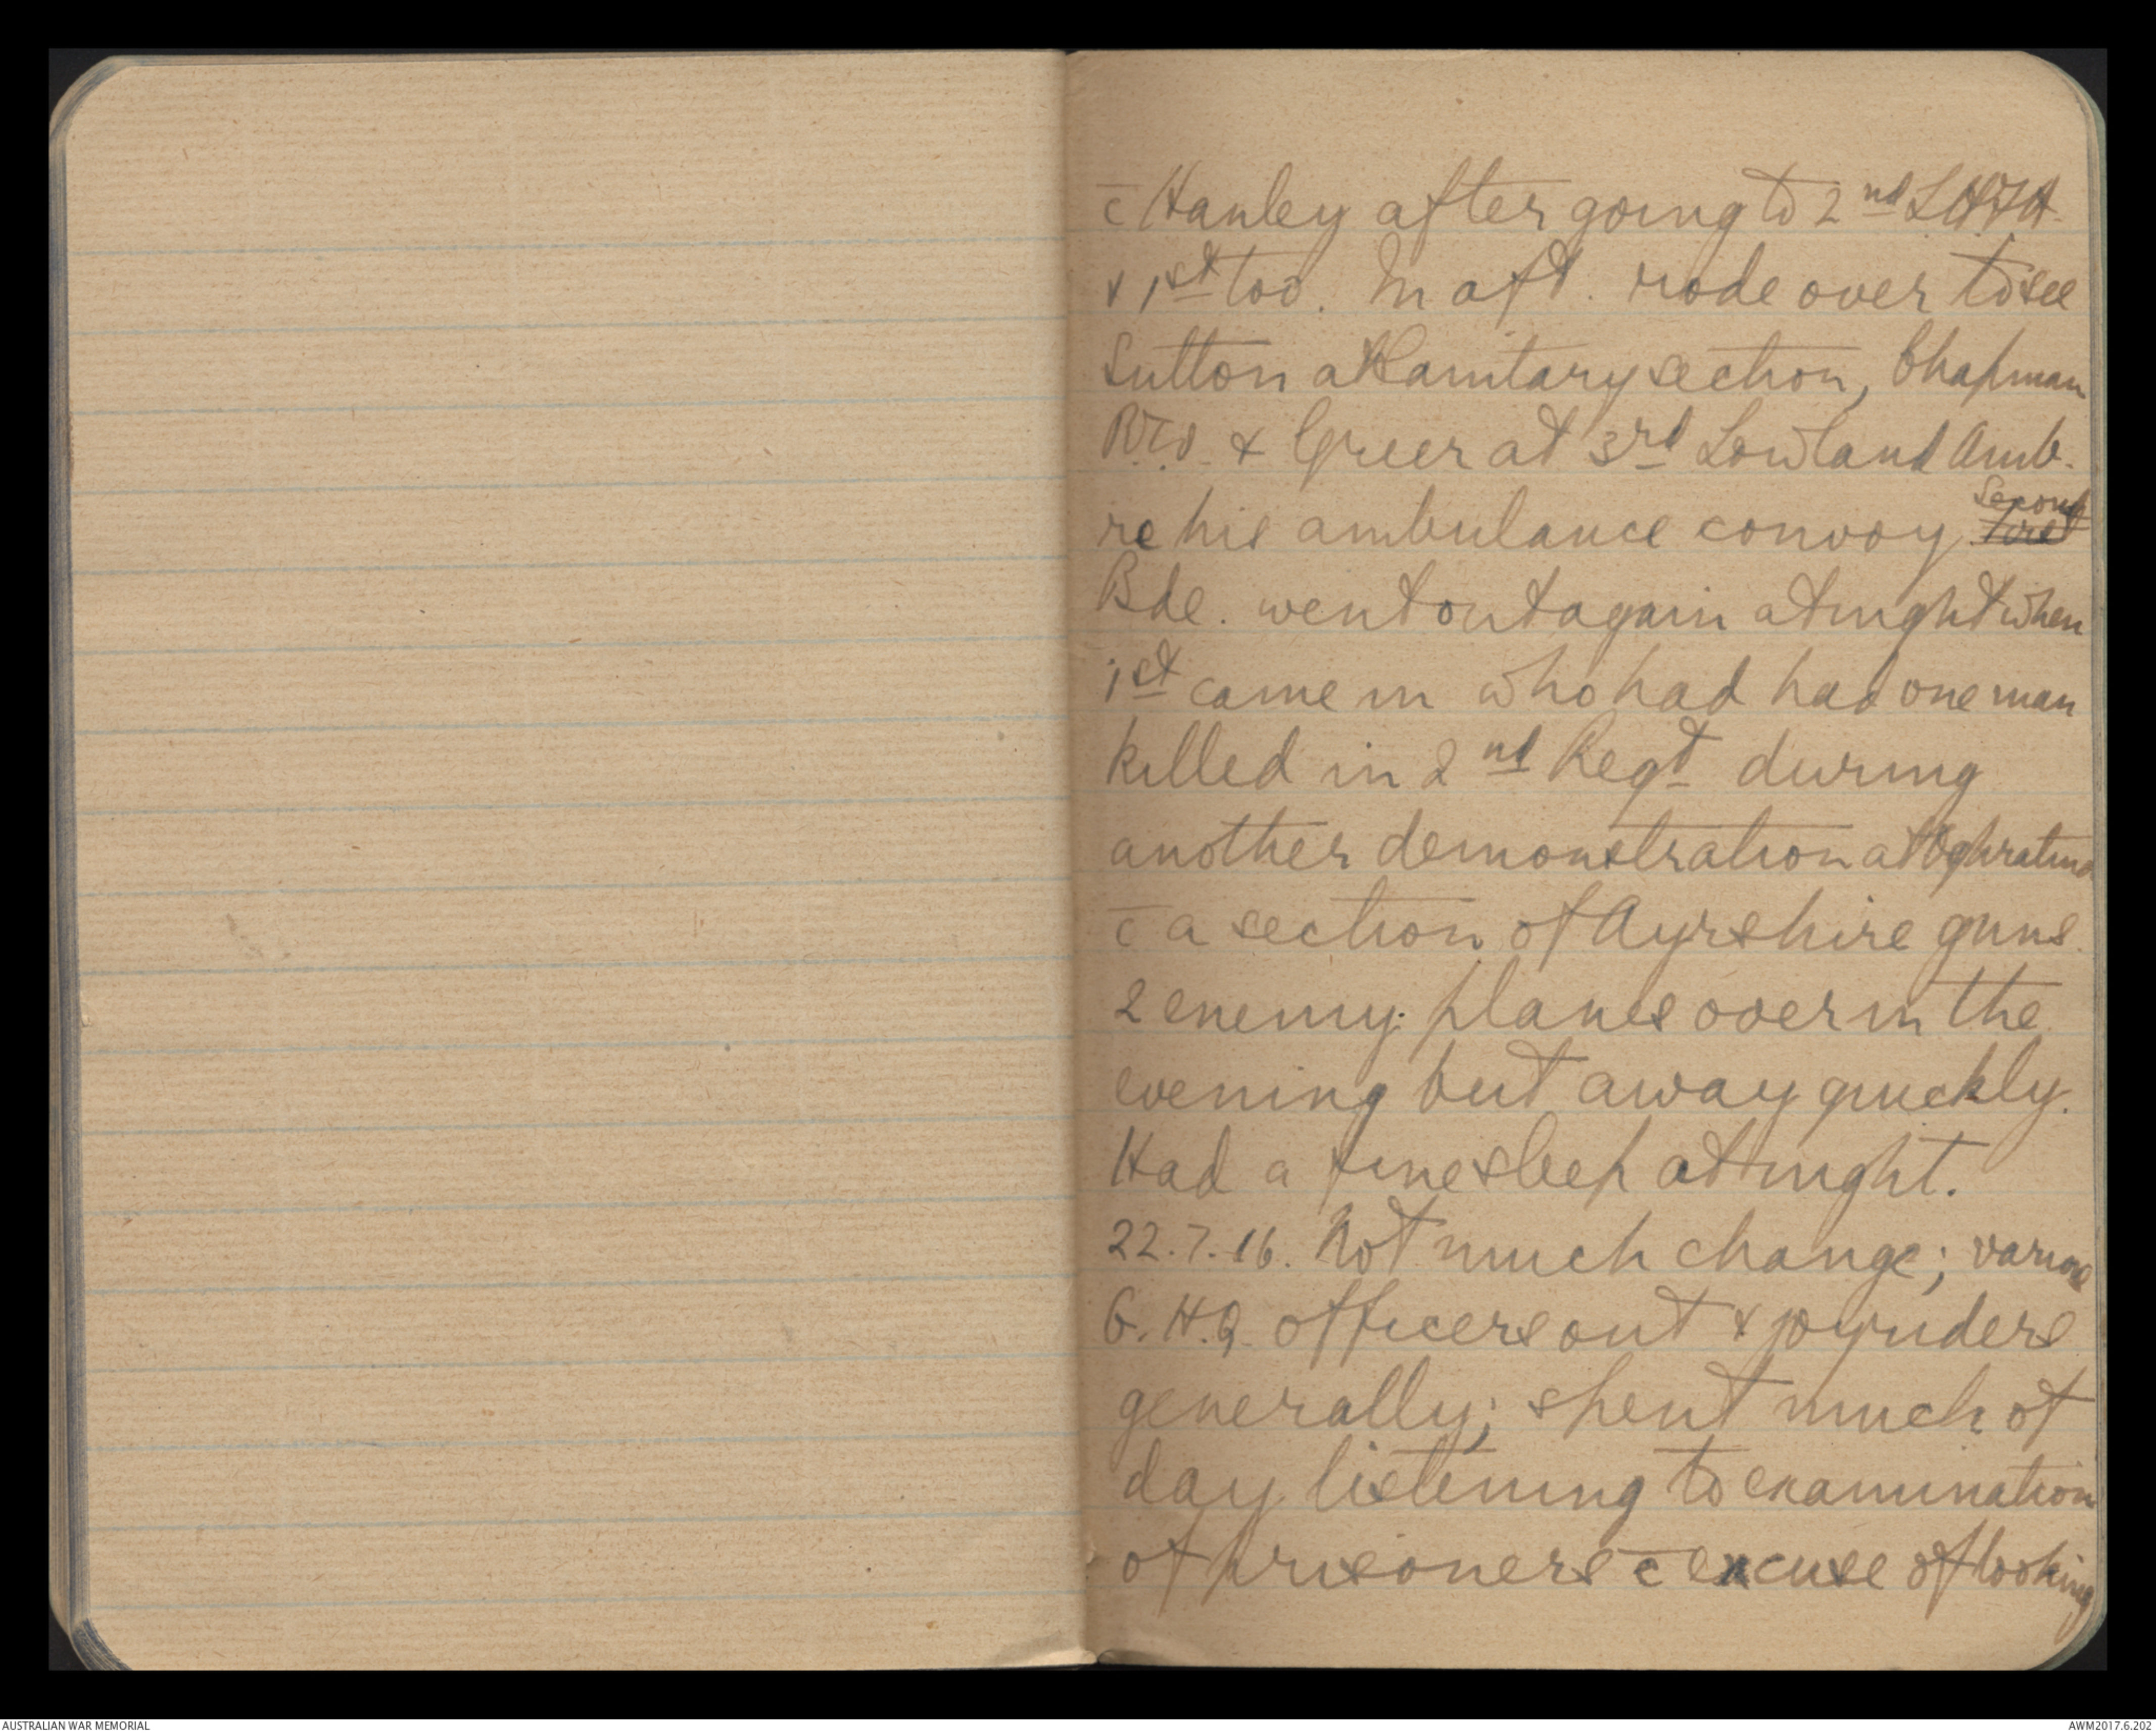 c̄ Hanley after going to 2nd L.H.F.A.
& 1st too. In aft. rode over to see
Sutton at Sanitary section, Chapman
& Greer at 3rd Lowland Amb.
re his ambulance convoy. Second first
Bde. went out again at night when
1st came in who had had one man
killed in 2nd Regt during
another demonstration at Oghratina
c̄ a section of Ayrshire guns.
2 enemy planes over in the
evening but away quickly.
Had a fine sleep at night.
22.7.16. Not much change; various
G.H.Q. officers out & joyriders
generally; spent much of
day listening to examination
of prisoners c̄ excuse of looking
AUSTRALIAN WAR MEMORIAL
AWM2017.6.202